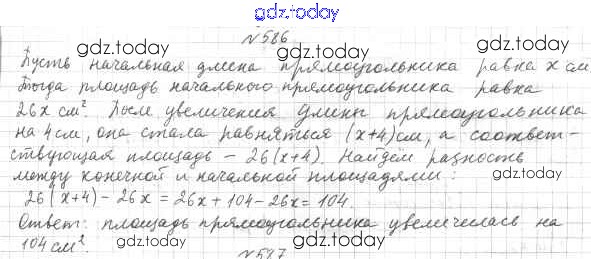 gdz.today
№586
gdz.today gdz.today
Пусть начальная длина прямоугольника равна x см.
Тогда площадь начального прямоугольника равна
26x см². После увеличения длины прямоугольника
gdz.today gdz.today
на 4 см, она стала равняться (x+4) см, а соответ-
ствующая площадь – 26(x+4). Найдём разность
gdz.today gdz.today
между конечной и начальной площадями:
26(x+4) – 26x = 26x + 104 – 26x = 104.
gdz.today gdz.today
Ответ: площадь прямоугольника увеличилась на
104 см².
gdz.today gdz.today
№587